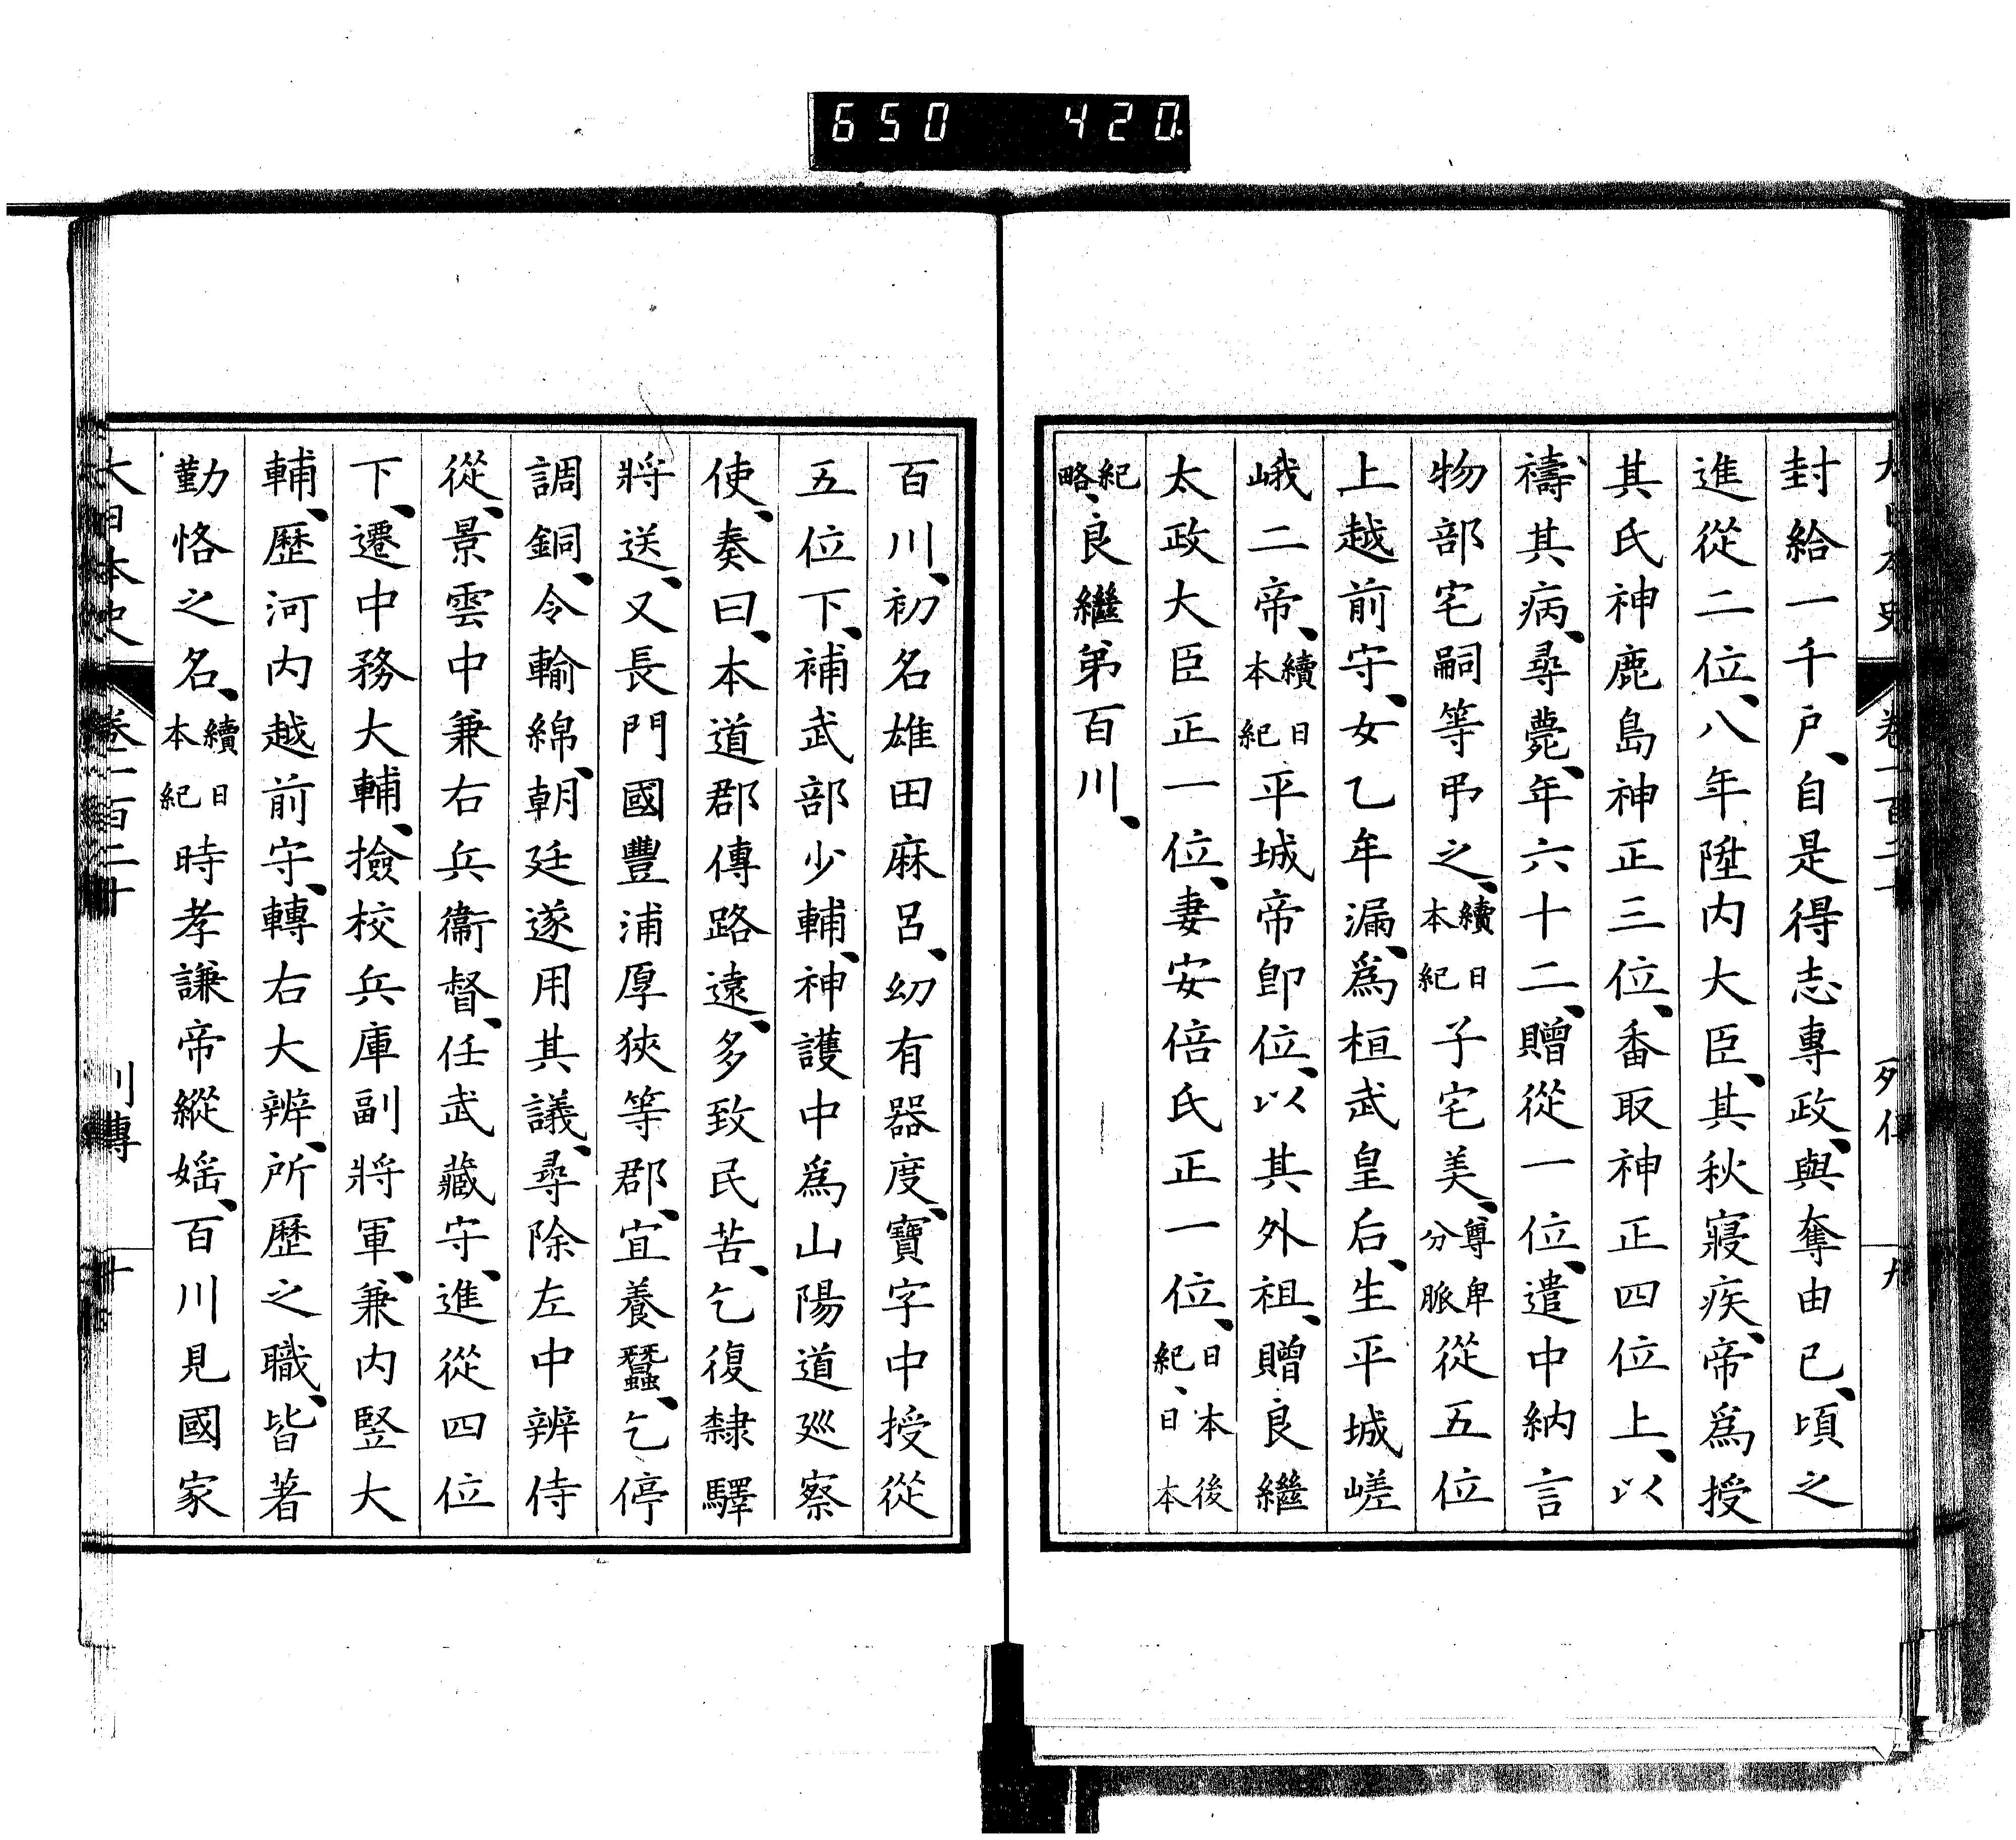 650 420.
封給一千戶、自是得志專政、與奪由己、頃之
進從二位、八年陞内大臣、其秋寢疾、帝爲授
其氏神鹿島神正三位、香取神正四位上、以
禱其病、尋薨、年六十二、贈從一位、遣中納言
物部宅嗣等弔之、續日本紀子宅美、尊卑分脈從五位
上越前守、女乙牟漏、爲桓武皇后、生平城嵯
峨二帝、續日本紀平城帝卽位、以其外祖、贈良繼
太政大臣正一位、妻安倍氏正一位、日本後紀、日本
紀略、良繼弟百川、
百川、初名雄田麻呂、幼有器度、寶字中授從
五位下、補武部少輔、神護中爲山陽道廵察
使、奏曰、本道郡傳路遠、多致民苦、乞復隸驛
將送、又長門國豐浦厚狹等郡、宜養蠶、乞停
調銅、令輸綿、朝廷遂用其議、尋除左中辨侍
從、景雲中兼右兵衞督、任武藏守、進從四位
下、遷中務大輔、撿校兵庫副將軍、兼内竪大
輔、歷河内越前守、轉右大辨、所歷之職、皆著
勤恪之名、續日本紀時孝謙帝縱媱、百川見國家
大日本史 卷一百二十 列傳 十